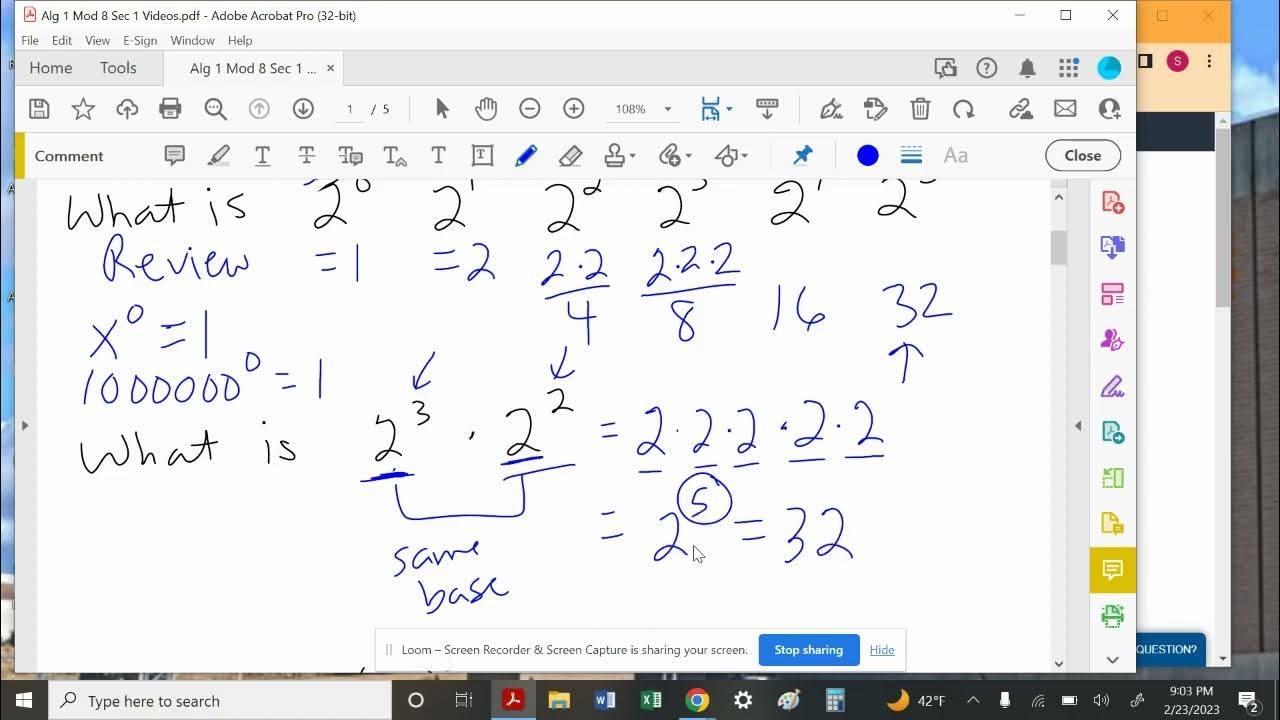 Alg 1 Mod 8 Sec 1 Videos.pdf - Adobe Acrobat Pro (32-bit)
File Edit View E-Sign Window Help
Home Tools Alg 1 Mod 8 Sec 1 ... ×
S
1 / 5 108%
Comment Aa Close
What is 2⁰ 2¹ 2² 2³ 2
Review =1 =2 2·2 2·2·2
4 8 16 32
x⁰ = 1
1000000⁰ = 1
What is 2³ · 2² = 2·2·2·2·2
= 2⁵ = 32
same
base
Loom – Screen Recorder & Screen Capture is sharing your screen. Stop sharing Hide
QUESTION?
Type here to search
42°F
9:03 PM
2/23/2023
2